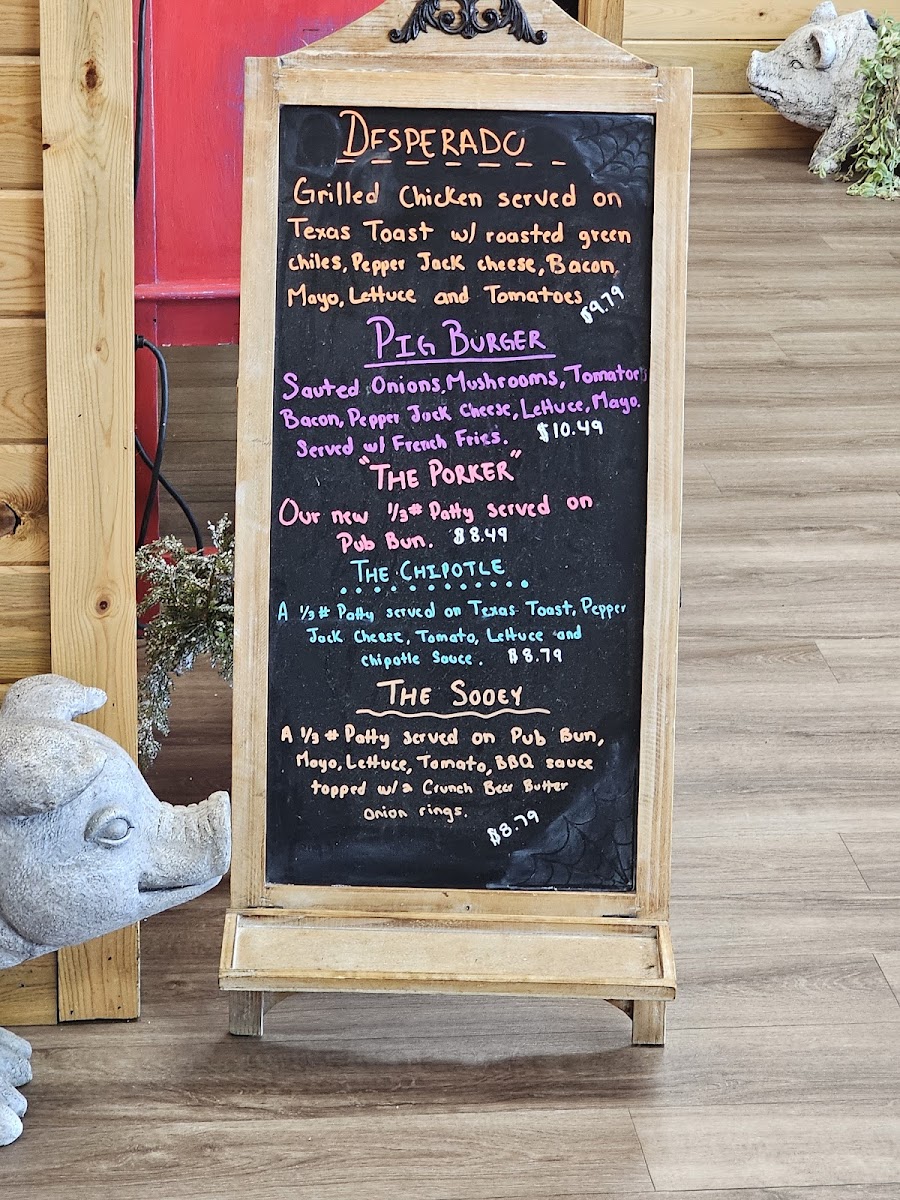 DESPERADO
Grilled Chicken served on
Texas Toast w/ roasted green
chiles, Pepper Jack cheese, Bacon,
Mayo, Lettuce and Tomatoes
$9.79
PIG BURGER
Sauted Onions, Mushrooms, Tomatoes
Bacon, Pepper Jack Cheese, Lettuce, Mayo.
Served w/ French Fries. $10.49
"THE PORKER"
Our new 1/3# Patty served on
Pub Bun. $8.49
THE CHIPOTLE
A 1/3# Patty served on Texas Toast, Pepper
Jack Cheese, Tomato, Lettuce and
Chipotle Sauce. $8.79
THE SOOEY
A 1/3# Patty served on Pub Bun,
Mayo, Lettuce, Tomato, BBQ sauce
topped w/a Crunch Beer Butter
onion rings.
$8.79